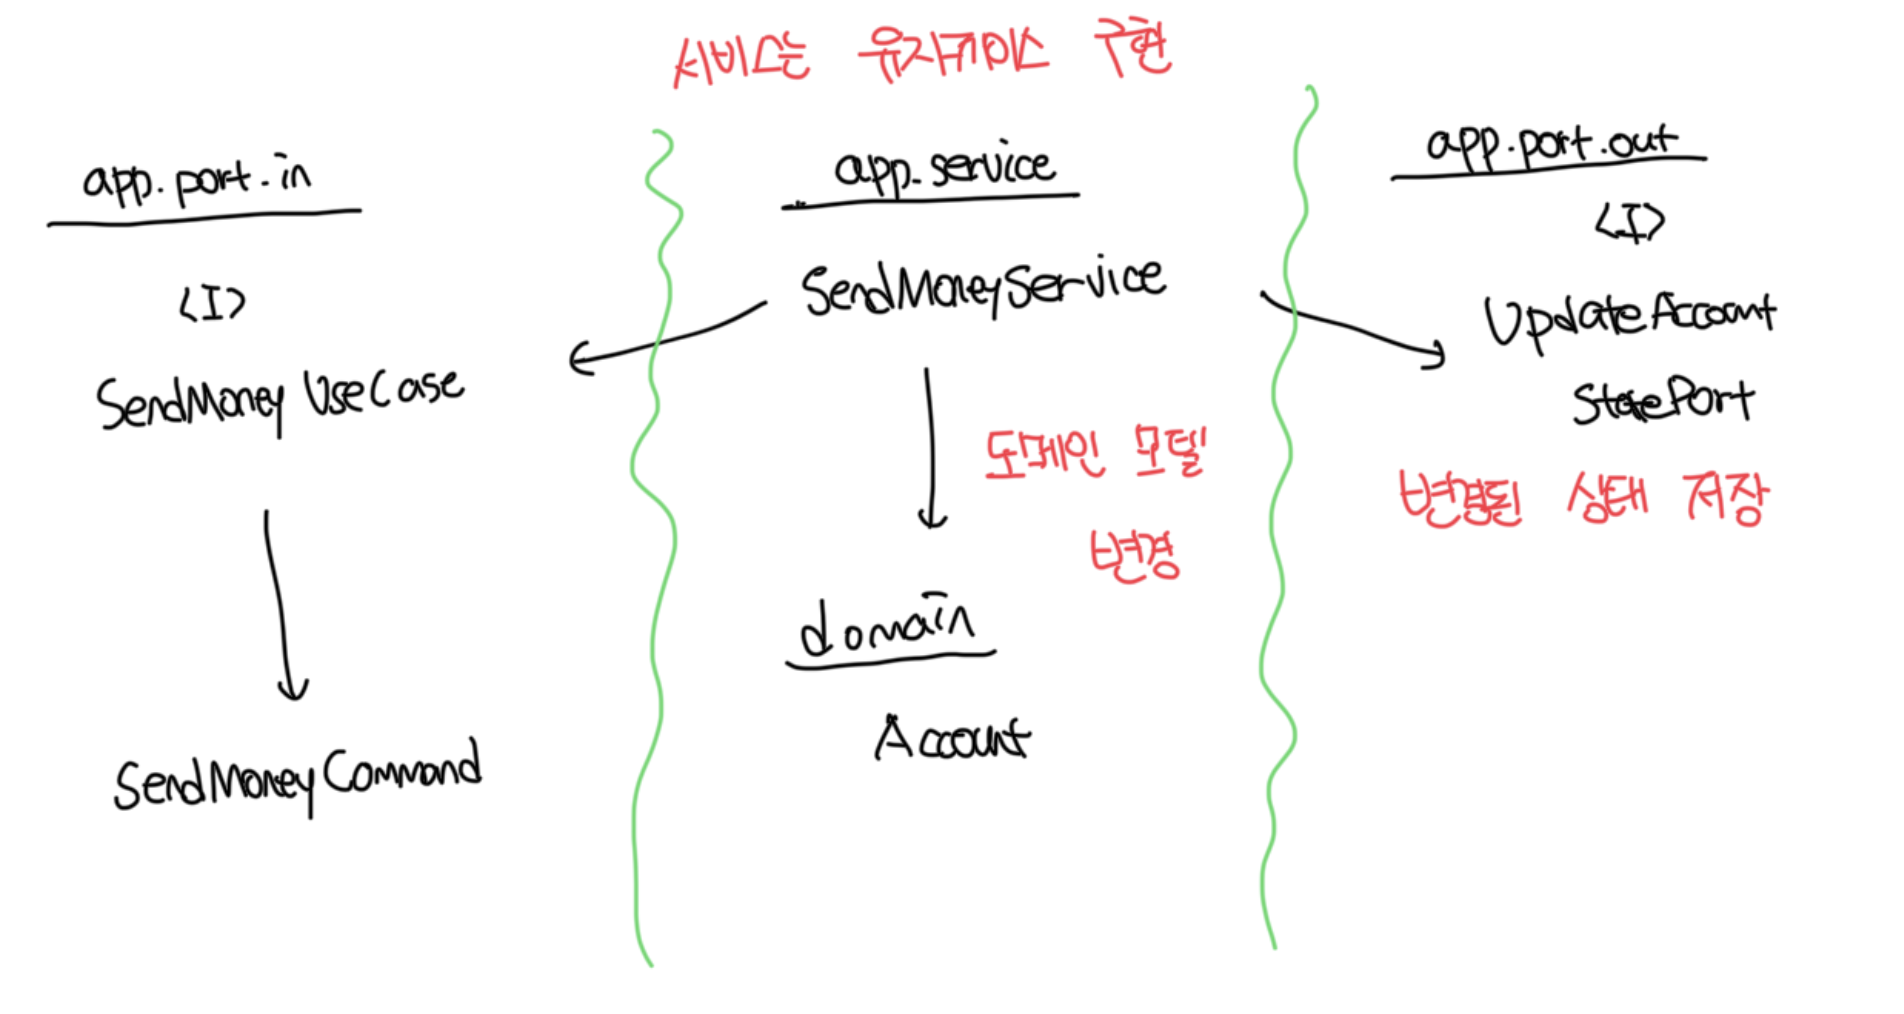 서비스는 유지케이스 구현
app.port.in
<I>
SendMoneyUseCase
SendMoneyCommand
app.service
SendMoneyService
도메인 모델
변경
domain
Account
app.port.out
<I>
UpdateAccount
StatePort
변경된 상태 저장